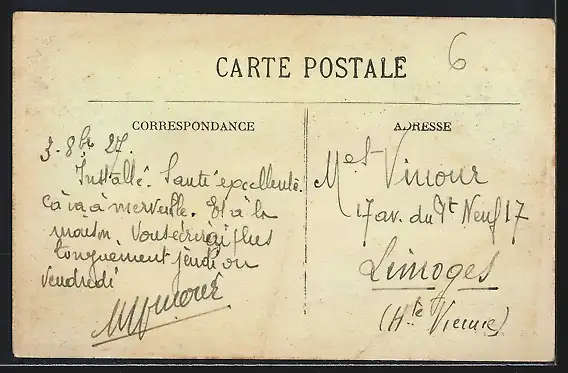 6
CARTE POSTALE
CORRESPONDANCE
ADRESSE
3. 8bre 27.
Installé. Santé excellente.
ça va à merveille. Et à la
maison. Vous écrirai plus
longuement jeudi ou
vendredi
Met Vimour
17 av. du Pt Neuf 17
Limoges
(Hte Vienne)